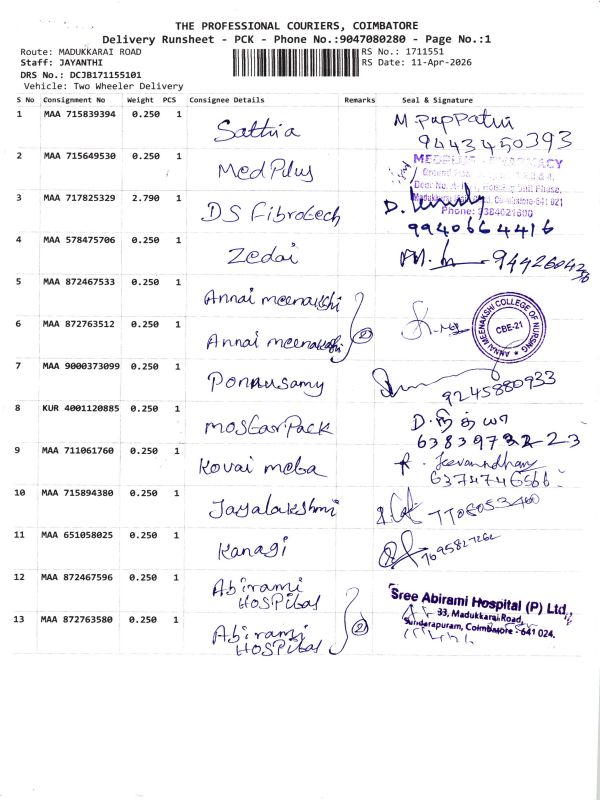 THE PROFESSIONAL COURIERS, COIMBATORE
Delivery Runsheet - PCK - Phone No.:9047080280 - Page No.:1
Route: MADUKKARAI ROAD
RS No.: 1711551
Staff: JAYANTHI
RS Date: 11-Apr-2026
DRS No.: DCJB171155101
Vehicle: Two Wheeler Delivery
S No Consignment No Weight PCS Consignee Details Remarks Seal & Signature
1 MAA 715839394 0.250 1 Sathia M. Pappathi
9443450393
2 MAA 715649530 0.250 1 MedPlus MEDPLUS - PHARMACY
Phone:
3 MAA 717825329 2.790 1 DS Fibrotech D.
9940664416
4 MAA 578475706 0.250 1 Zedai
5 MAA 872467533 0.250 1 Annai meenakshi
6 MAA 872763512 0.250 1 Annai meenakshi 2
ANNAI MEENAKSHI COLLEGE OF NURSING
CBE-21
7 MAA 9000373099 0.250 1 Ponnusamy
9245880933
8 KUR 4001120885 0.250 1 MosgarPack D. நித்யா
9 MAA 711061760 0.250 1 Kovai meba Jeevanandham
6374746566
10 MAA 715894380 0.250 1 Jayalakshmi
11 MAA 651058025 0.250 1 Kanagi
12 MAA 872467596 0.250 1 Abirami
HOSPital
Sree Abirami Hospital (P) Ltd.,
33, Madukkarai Road,
Sundarapuram, Coimbatore - 641 024.
13 MAA 872763580 0.250 1 Abirami 2
HOSPital